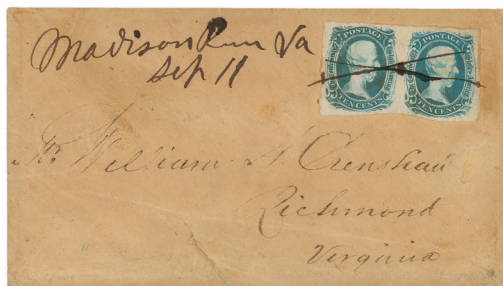 Madison Run Va
Sep 11
POSTAGE POSTAGE
TEN CENTS TEN CENTS
Mr. William A Crenshaw
Richmond
Virginia